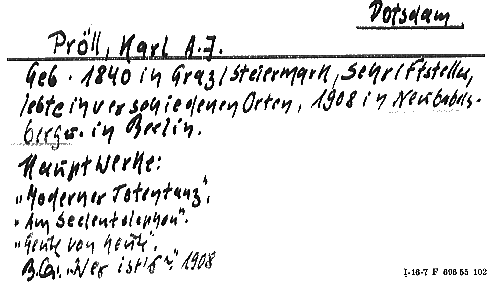 Potsdam,
Pröll, Karl A. J.
Geb. 1840 in Graz/Steiermark, Schriftsteller,
lebte in verschiedenen Orten, 1908 in Neubabels-
berg. in Berlin.
Hauptwerke:
„Moderner Totentanz".
„Am Seelentelephon".
„Heute von heute".
„Wer ist's" 1908
I-16-7 F 696 55 102